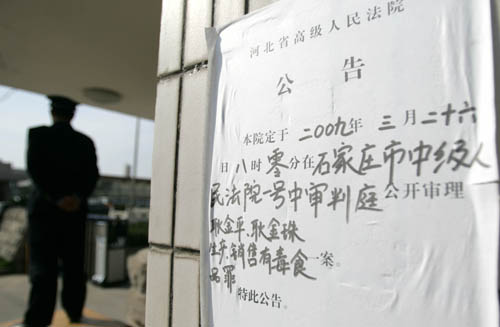 河北省高级人民法院
公告
本院定于二00九年三月二十六
日八时零分在石家庄市中级人
民法院一号中审判庭公开审理
耿金平、耿金珠
生产、销售有毒食一案。
品罪
特此公告。